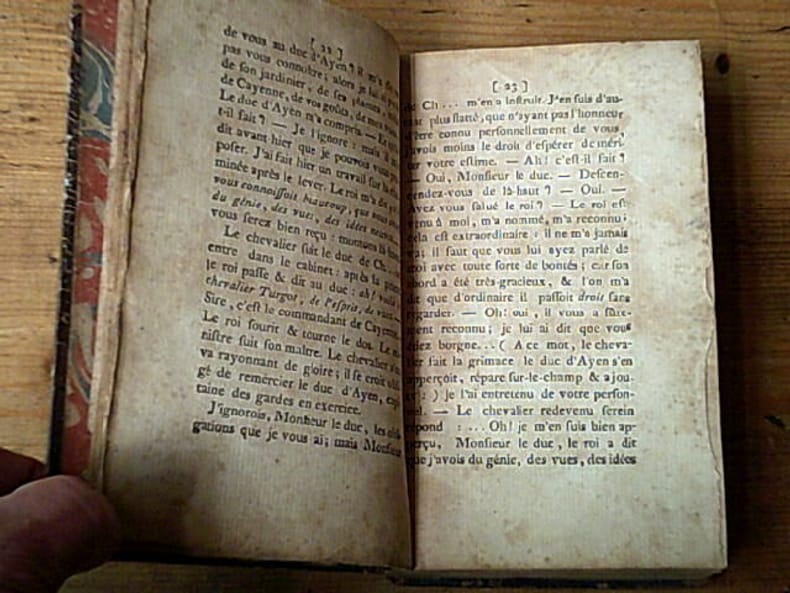 [ 22 ]
de vous au duc d'Ayen? il m'a
pas vous connoître; alors je lui
de son jardinier, de ses plantes
de Cayenne, de vos goûts, de
Le duc d'Ayen m'a compris. — Et
t-il fait? — Je l'ignore: mais il
dit avant-hier que je pouvois vous
poser. J'ai fait hier un travail sur la
minée après le lever. Le roi m'a dit
vous connoissoit beaucoup, que vous
du génie, des vues, des idées
vous serez bien reçu: montons là
Le chevalier suit le duc de Ch....
entre dans le cabinet: après la
le roi passe & dit au duc: ah! voilà
chevalier Turgot, de l'esprit, de
Sire, c'est le commandant de Cayenne.
Le roi sourit & tourne le dos. Le
nistre suit son maître. Le chevalier s'en
va rayonnant de gloire; il se croit
gé de remercier le duc d'Ayen, capi-
taine des gardes en exercice.
J'ignorois, Monsieur le duc, les obli-
gations que je vous ai; mais Monsieur
[ 23 ]
de Ch... m'en a instruit. J'en suis d'au-
tant plus flatté, que n'ayant pas l'honneur
d'être connu personnellement de vous,
j'avois moins le droit d'espérer de méri-
ter votre estime. — Ah! c'est-il fait?
— Oui, Monsieur le duc. — Descen-
dendez-vous de là-haut? — Oui. —
Avez vous salué le roi? — Le roi est
venu à moi, m'a nommé, m'a reconnu;
cela est extraordinaire: il ne m'a jamais
vu; il faut que vous lui ayez parlé de
moi avec toute sorte de bontés; car son
abord a été très-gracieux, & l'on m'a
dit que d'ordinaire il passoit droit sans
regarder. — Oh! oui, il vous a sûre-
ment reconnu; je lui ai dit que vous
étiez borgne... ( A ce mot, le cheva-
lier fait la grimace le duc d'Ayen s'en
apperçoit, répare sur-le-champ & ajou-
te: ) je l'ai entretenu de votre person-
nel. — Le chevalier redevenu serein
répond : ... Oh! je m'en suis bien ap-
perçu, Monsieur le duc, le roi a dit
que j'avois du génie, des vues, des idées